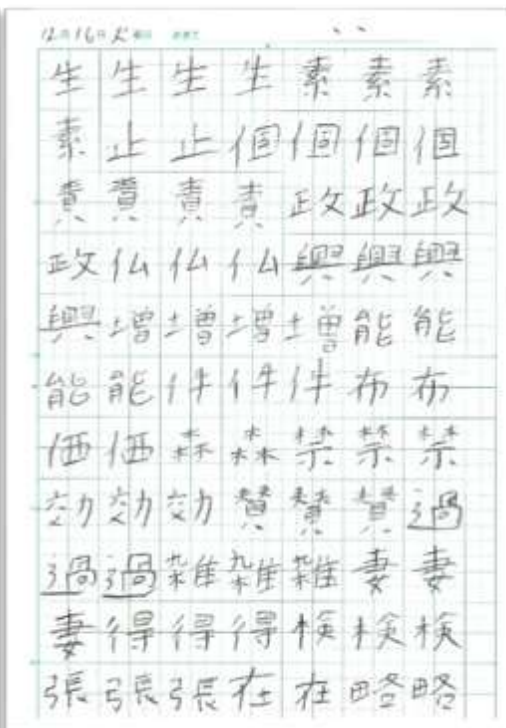 12月16日火曜日
生生生生素素素
素止止個個個個
責責責責政政政
政仏仏仏興興興
興増増増増能能
能能件件件布布
価価森森禁禁禁
効効効賛賛賛過
過過雑雑雑妻妻
妻得得得検検検
張張張在在略略